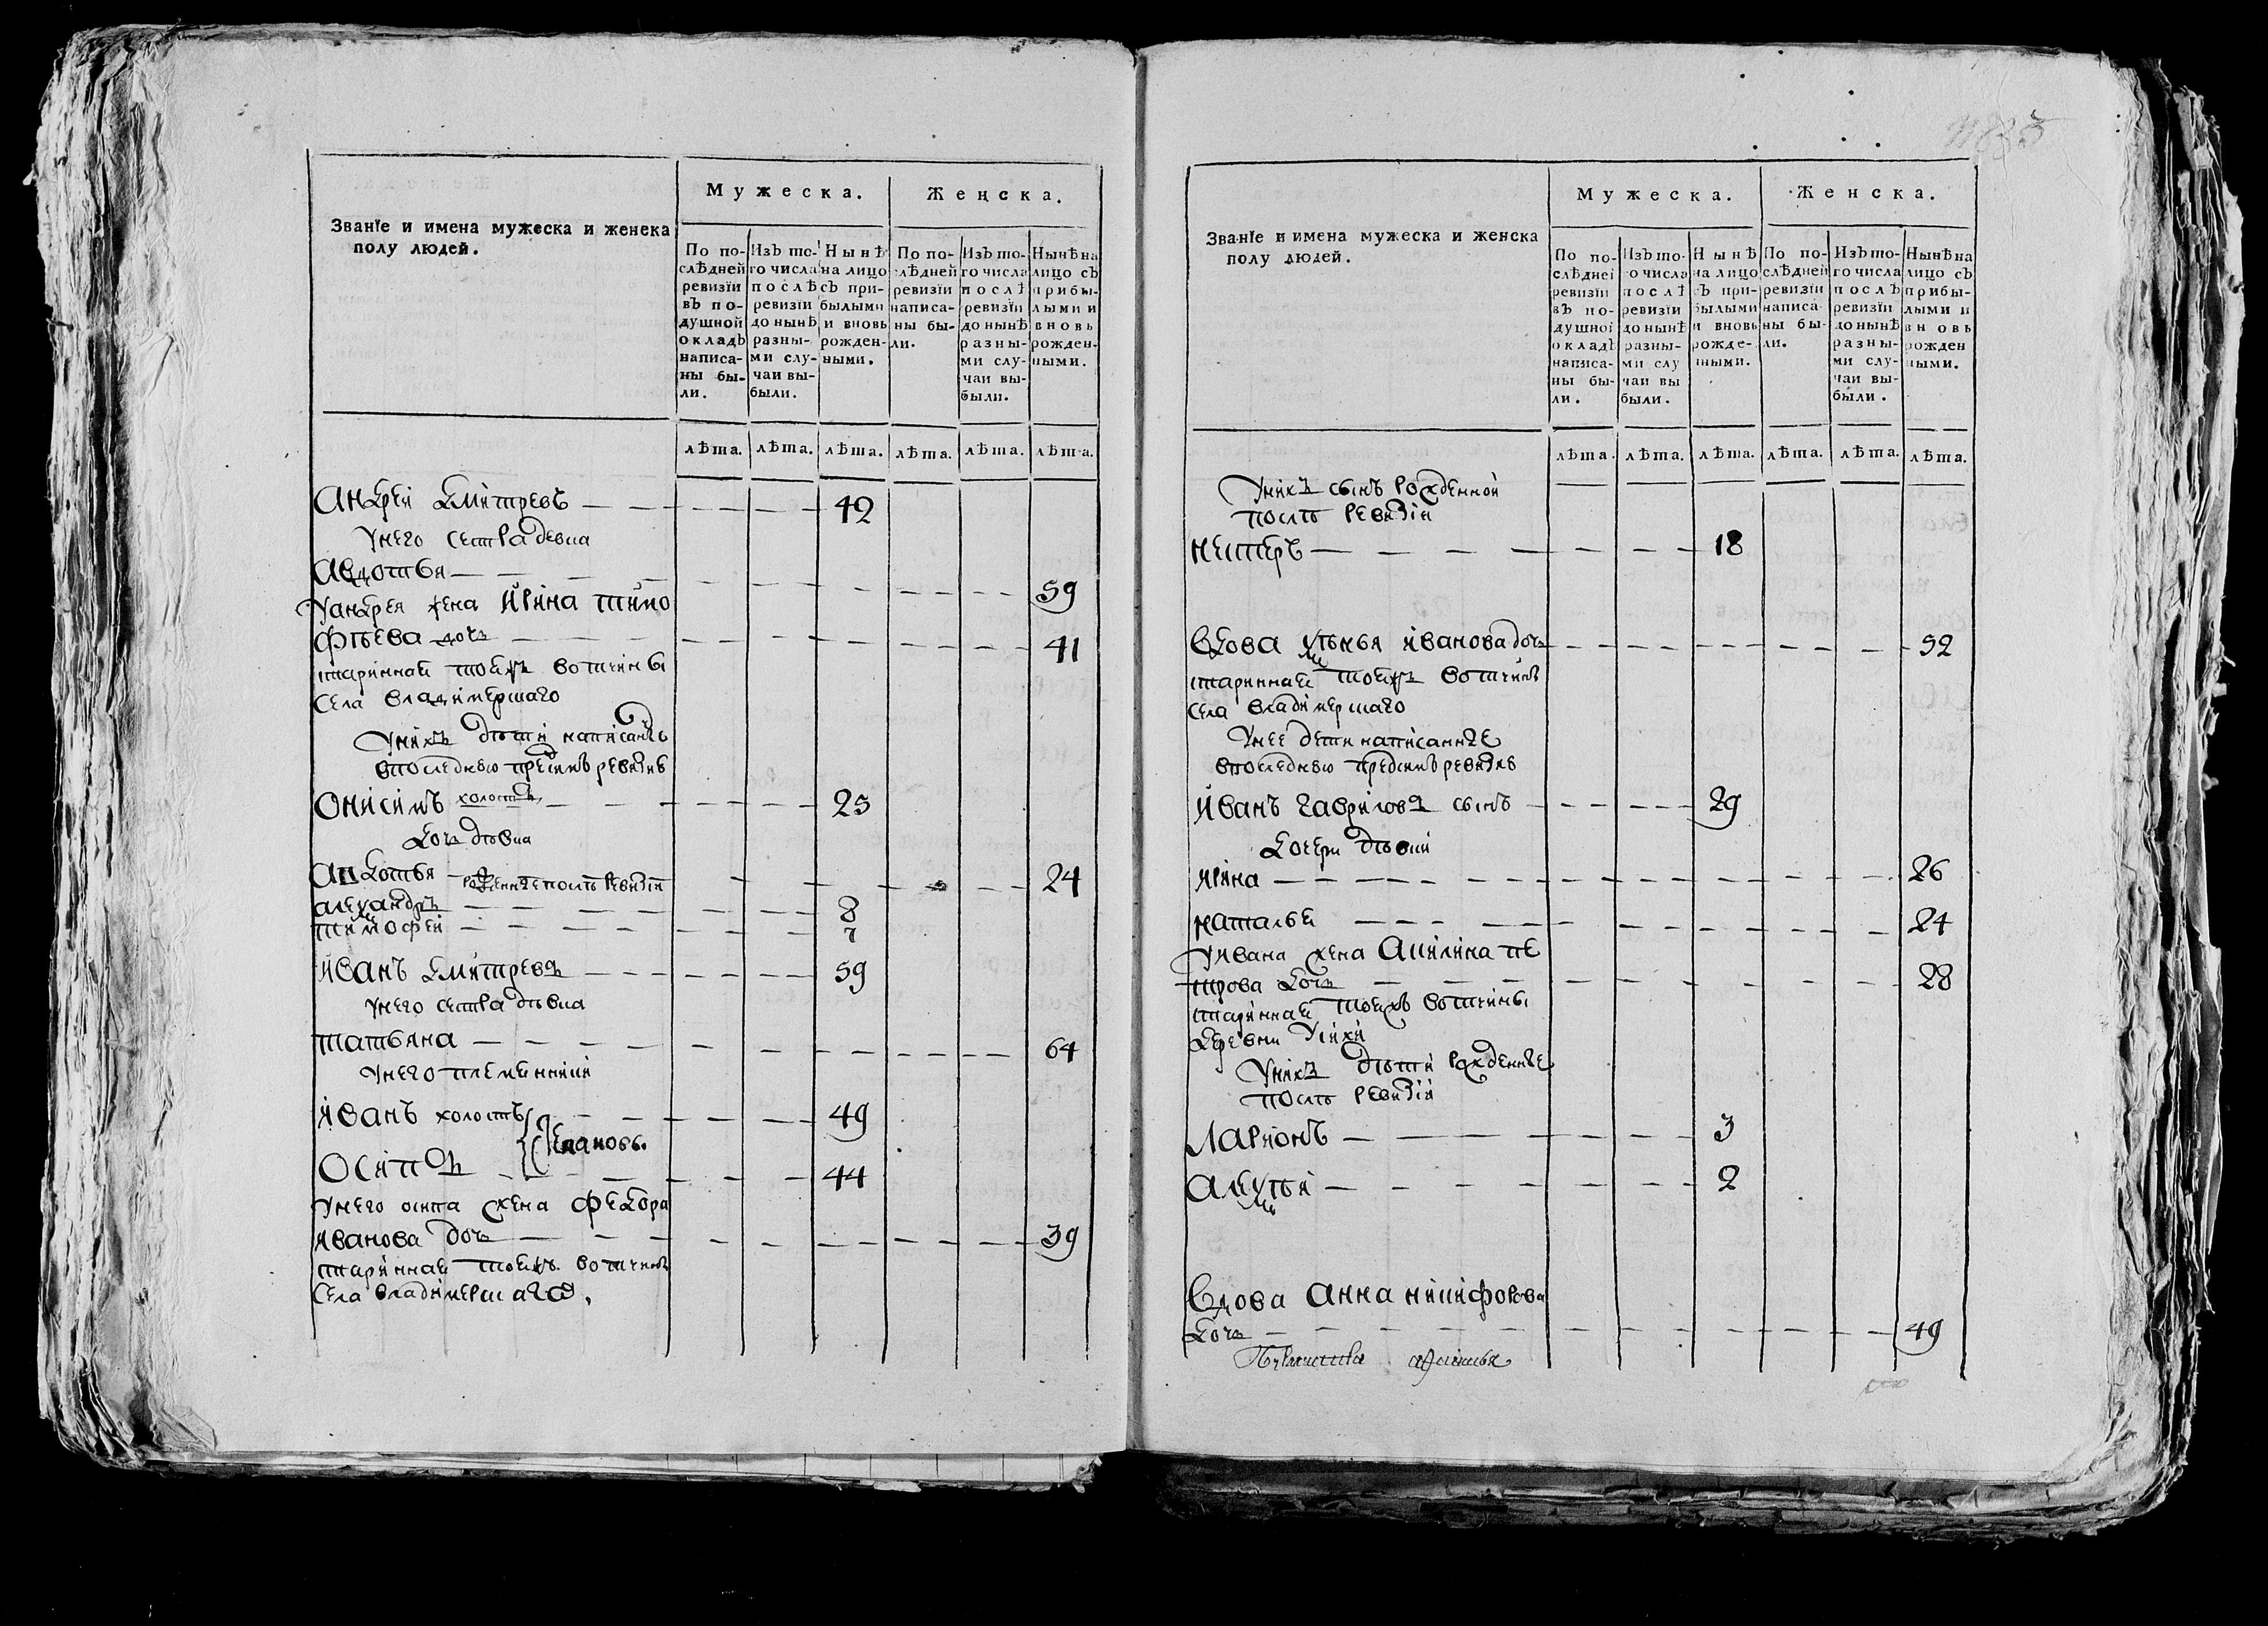 Мужеска.
Женска.
Званїе и имена мужеска и женека
полу людей.
По по-
слѣдней
ревизїи
въ по-
душной
окладъ
написа-
ны бы-
ли.
Изъ то-
го числа
послѣ
ревизїи
до нынѣ
разны-
ми слу-
чаи вы-
были.
Нынѣ
на лицо
съ при-
былыми
и вновь
рожден-
ными.
По по-
слѣдней
ревизїи
написа-
ны бы-
ли.
Изъ то-
го числа
послѣ
ревизїи
до нынѣ
разны-
ми слу-
чаи вы-
были.
Нынѣ на
лицо съ
прибы-
лыми и
вновь
рожден-
ными.
лѣта. лѣта. лѣта. лѣта. лѣта. лѣта.
Андреи Дмитревъ 42
У него сестра девка
Авдотья 59
У андрея жена Ирина тимо
фѣева дочь 41
старинная тоежъ вотчины
села владимерскаго
У нихъ дѣти написаные
в последнюю пред симъ ревизию
Онисимъ холостъ 25
Дочь дѣвка
Авдотья 24
рожденные послѣ ревизiи
алеѯандръ 8
тимофеи 7
Иванъ Дмитревъ 59
У него сестра дѣвка
татьяна 64
У него племянники
Иванъ холостъ 49
Осипъ 44
У него осипа жена Федора
Иванова дочь 39
старинная тоежъ вотчины
села владимерскаго.
Званїе и имена мужеска и женска
полу людей.
Мужеска.
Женска.
По по-
слѣдней
ревизїи
въ по-
душной
окладъ
написа-
ны бы-
ли.
Изъ то-
го числа
послѣ
ревизїи
до нынѣ
разны-
ми слу
чаи вы
были.
Нынѣ
на лицо
съ при-
былыми
и вновь
рожде-
нными.
По по-
слѣдней
ревизїи
написа-
ны бы-
ли.
Изъ то-
го числа
послѣ
ревизїи
до нынѣ
разны-
ми слу-
чаи вы-
были.
Нынѣ на
лицо съ
прибы-
лыми и
вновь
рожден
ными.
лѣта. лѣта. лѣта. лѣта. лѣта. лѣта.
У нихъ сынъ рожденной
послѣ ревизiи
нестеръ 18
Вдова Ульянья иванова дочь 52
старинная тоежъ вотчины
села владимерскаго
У нее дети написанные
в последнюю пред симъ ревизию
Иванъ гавриловъ сынъ 29
Дочери дѣвки
Ирина 26
наталья 24
У ивана жена Акилина пе
трова дочь 28
старинная тоежъ вотчины
деревни
У нихъ дѣти рожденые
послѣ ревизiи
Ларионъ 3
Алеѯѣй 2
Вдова Анна никифорова
дочь 49